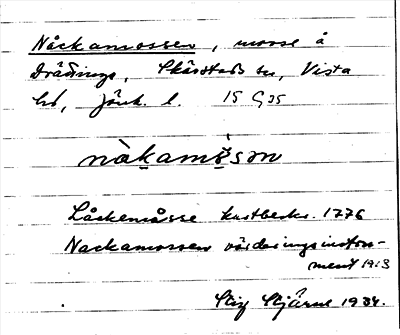 Nåckamossen, mosse å
Drättinge, Skärstads sn, Vista
hd, Jönk. l. 15 G 35
nàkamɵ̀sən
Låckemåsse kartbeskr. 1776
Nackamossen värderingsinstru-
ment 1913
Stig Stjärne 1934.